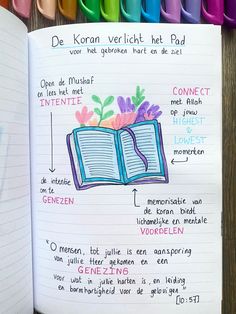 De Koran verlicht het Pad
voor het gebroken hart en de ziel
Open de Mushaf
en lees het met
INTENTIE
CONNECT
met Allah
op jouw
HIGHEST
&
LOWEST
momenten
de intentie
om te
GENEZEN
memorisatie van
de koran biedt
lichamelijke en mentale
VOORDELEN
"O mensen, tot jullie is een aansporing
van jullie Heer gekomen en een
GENEZING
voor wat in jullie harten is, en leiding
en barmhartigheid voor de gelovigen"
[10:57]